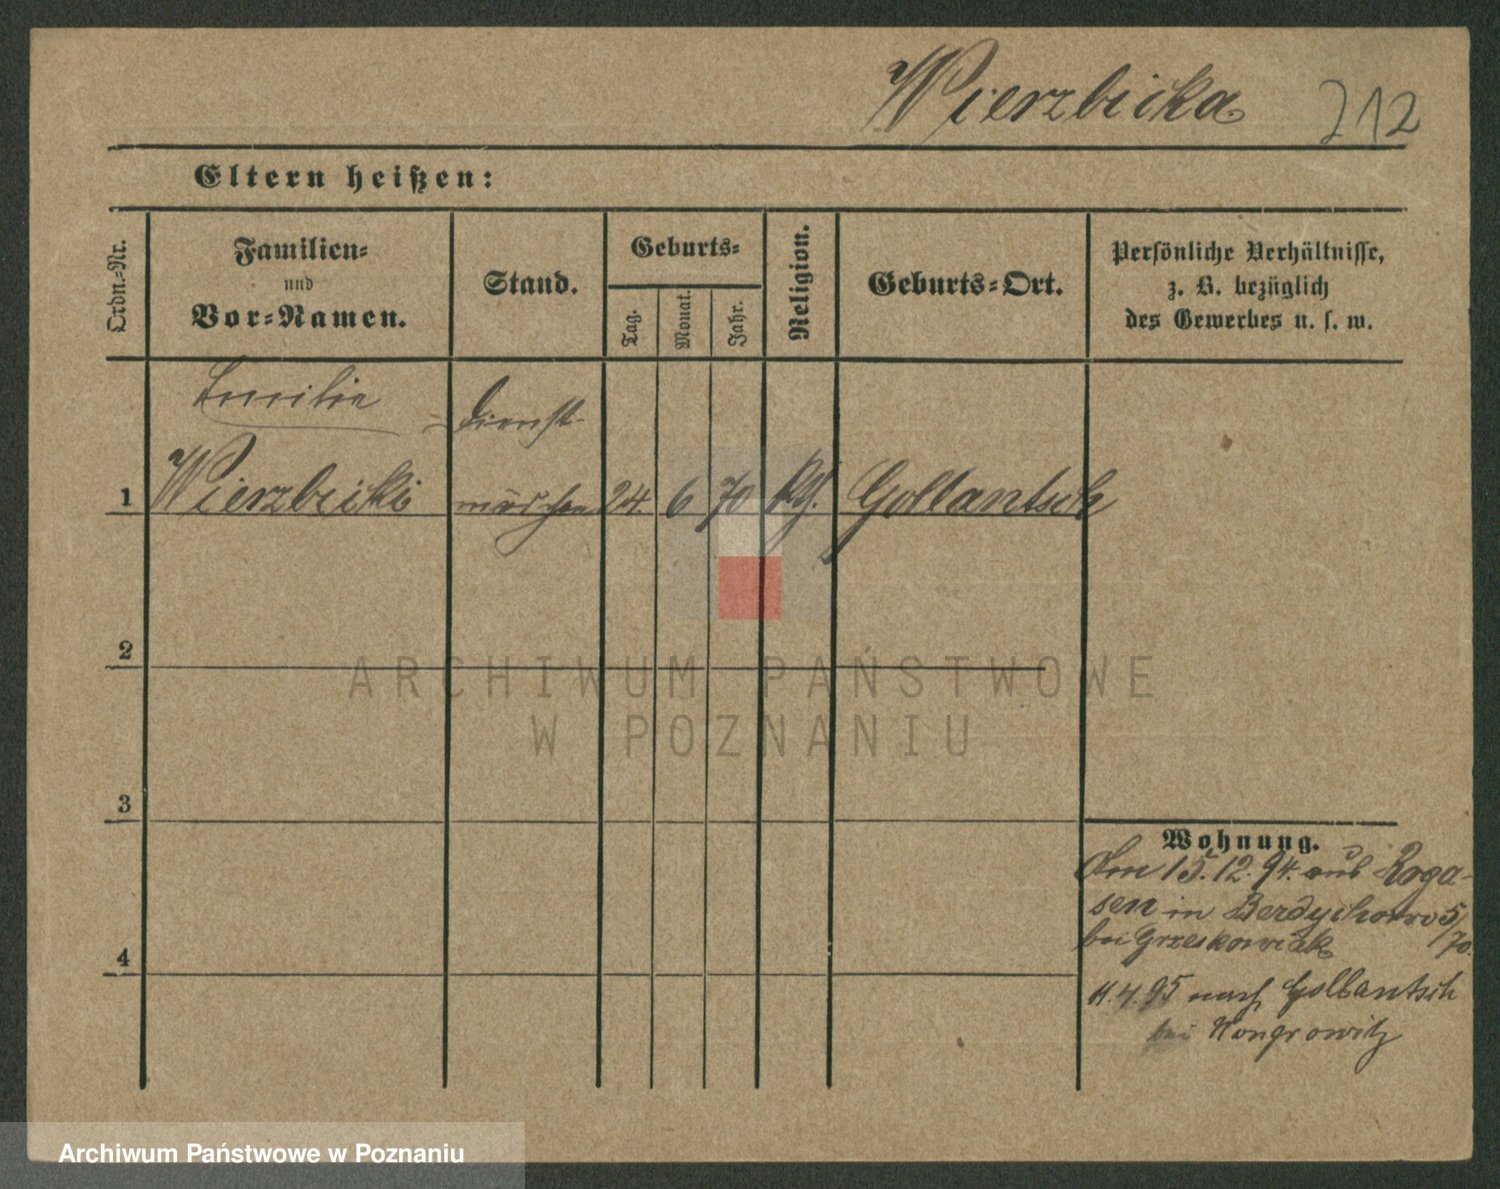 Wierzbicka 212
Eltern heißen:
Ordn.-Nr.
Familien-
und
Vor-Namen.
Stand.
Geburts-
Tag.
Monat.
Jahr.
Religion.
Geburts-Ort.
Persönliche Verhältnisse,
z. B. bezüglich
des Gewerbes u. s. w.
Emilie Dienst-
1 Wierzbicki mädchen 24. 6 70 Gollantsch
2
3
4
Wohnung.
Am 15.12.94. aus Roga-
sen in Berdychowo 5/
bei Grzeskowiak 70.
11.4.95 nach Gollantsch
bei Wongrowitz
ARCHIWUM PAŃSTWOWE
W POZNANIU
Archiwum Państwowe w Poznaniu